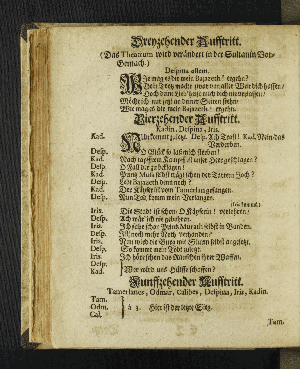 Dreyzehender Aufftritt.
(Das Theatrum wird verändert in der Sultanin Vor-
Gemach.)
Despina allein.
Wie mag es die mein Bajazeth! ergehn?
Dein Trotz macht zwar
Doch dein Lieb' heist mich dich
Möchte ich nur jetzt an deiner Seiten stehn/
Wie mag es die mein Bajazeth! ergehn.
Vierzehender Aufftritt.
Kadin, Despina, Iris.
Kad. Nun kommt zuletzt. Desp. Ich Trost! Kad. Nein/das
Verderben.
Desp. O Glück so laß mich sterben!
Kad. Nach tapfferm Kampff ist unser Heer geschlagen!
Desp. O Fall der zu beklagen!
Kad. Printz Muls selbst trägt schon der Tartern Joch?
Desp. Lebt Bajazeth denn noch?
Kad. Der Käyser ist vom Tamerlan gefangen.
Desp. Nun Tod komm mein Verlangen.
Iris. Die Stadt ist schon/ O Käyserin! verlohren/
Desp. Ach wär ich nie gebohren.
Iris. Ich sahe schon Printz Murath selbst in Banden.
Desp. Ist noch mehr Noth verhanden?
Iris. Nun wird die Burg mit Sturm selbst angesetzt.
Desp. So kommt mein Tod zuletzt.
Iris. Ich höre schon das Rauschen ihrer Waffen.
Desp.
Kad. Wer wird uns Hülffe schaffen?
Funffzehender Aufftritt.
Tamerlanes, Odmar, Calibes, Despina, Iris, Kadin.
Tam.
Odm. à 3. Hier ist der letzte Sitz.
Cal.
Tam.